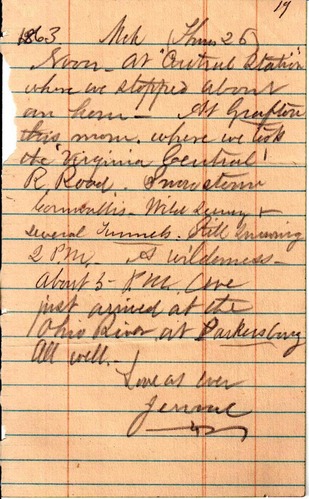 19
1863 Mch (Thurs 26)
Noon - At "Central Station"
where we stopped about
an hour - At Grafton
this morn. where we took
the "Virginia Central"
R. Road. Snowstorm
Cornwallis - Wild Scenery &
several Tunnels. Still Snowing
2 P.M. A wilderness -
about 5 - P.M. have
just arrived at the
Ohio River at Parkersburg
All well. -
Love as ever
Jerome